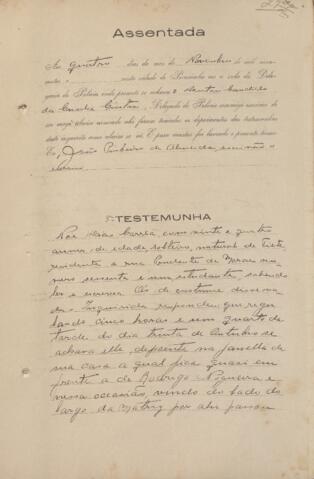 Assentada
Aos quatro dias do mez de Novembro de mil nove
centos e nesta cidade de Piracicaba na sala da Dele-
gacia de Policia onde presente se achava o doutor Candido
da Cunha Cintra, Delegado de Policia commigo escrivão de
seu cargo abaixo nomeado ahi foram tomados os depoimentos das testemunhas
deste inquerito como adiante se vê. E para constar foi lavrado o presente termo.
Eu, João Pinheiro de Almeida, escrivão o
escrevi
TESTEMUNHA
Correa com vinte e quatro
annos de edade, solteiro, natural de Tieté,
residente a rua Prudente de Moraes nu-
mero sessenta e um estudante, sabendo
ler e escrever. Aos de costume disse na-
da. Inquirido respondeu que regu-
lando cinco horas e um quarto da
tarde do dia trinta de Outubro se
achava elle depoente na janella de
sua casa a qual fica quasi em
frente a de Rodrigo Nogueira e
nessa occasião, vindo do lado do
largo da Matriz por ahi passou